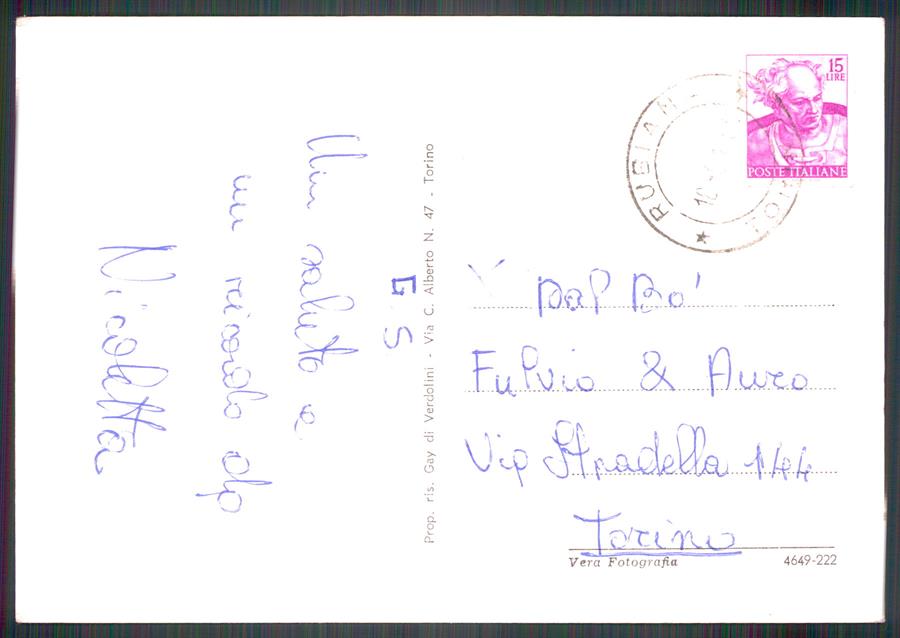 Un saluto e
un ricordo da
Nicoletta
G. S
Prop. ris. Gay di Verdolini - Via C. Alberto N. 47 - Torino
15
LIRE
POSTE ITALIANE
RUBIAN
TORINO
Dal Bo'
Fulvio & Auro
Via Stradella 144
Torino
Vera Fotografia
4649-222